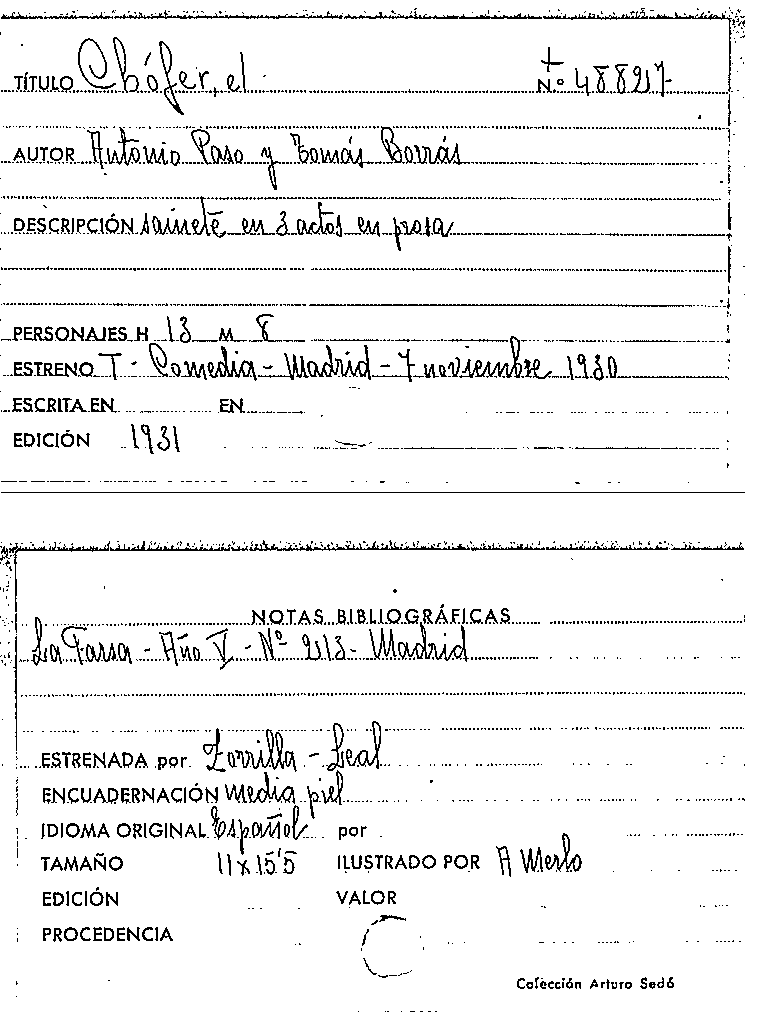 TÍTULO Chófer, el
Nº 48827
AUTOR Antonio Paso y Tomás Borrás
DESCRIPCIÓN sainete en 3 actos en prosa
PERSONAJES H 13 M 8
ESTRENO T - Comedia - Madrid - 7 noviembre 1930
ESCRITA EN EN
EDICIÓN 1931
NOTAS BIBLIOGRÁFICAS
La Farsa - Año V - Nº 213 - Madrid
ESTRENADA por Zorrilla - Leal
ENCUADERNACIÓN Media piel
IDIOMA ORIGINAL Español por
TAMAÑO 11 x 15'5 ILUSTRADO POR A Merlo
EDICIÓN VALOR
PROCEDENCIA
Colección Arturo Sedó